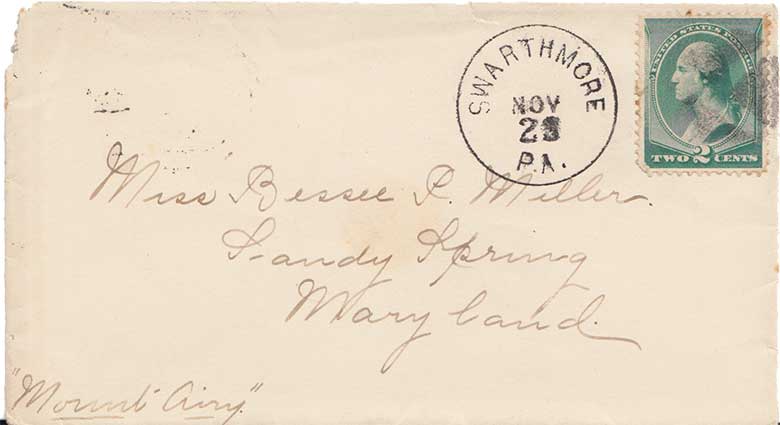 SWARTHMORE
NOV
23
PA.
UNITED STATES POSTAGE
TWO 2 CENTS
Miss Bessee P. Miller.
Sandy Spring
Maryland.
"Mount Airy."